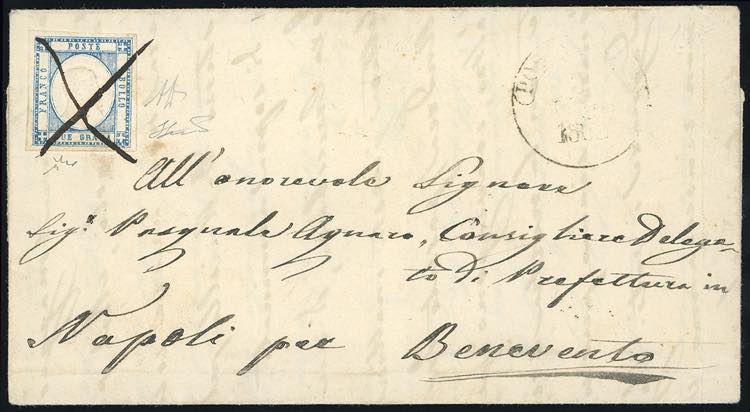 POSTE
FRANCO
BOLLO
DUE GRANA
All' onorevole Signore
Sig.r Pasquale Agnaro, Consigliere Delega-
to di Prefettura in
Napoli per Benevento